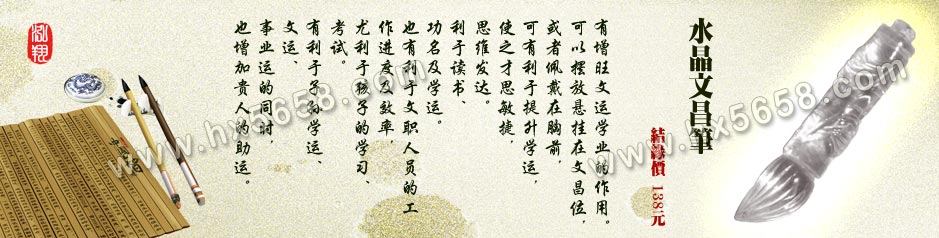 水晶文昌筆
結緣價 138元
有增旺文运学业的作用。
可以摆放悬挂在文昌位，
或者佩戴在胸前，
可有利于提升学运，
使之才思敏捷，
思维发达。
利于读书、
功名及学运。
也有利于文职人员的工
作进度及效率，
尤利于孩子的学习、
考试。
有利于子孙学运、
文运、
事业运的同时，
也增加贵人的助运。
www.hx5658.com
www.hx5658.com